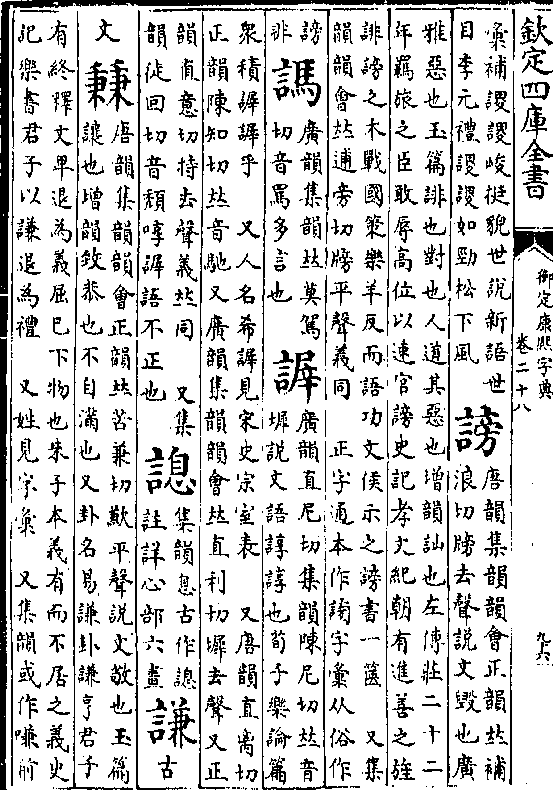 欽定四庫全書
御定康熙字典
卷二十八
彙補謖謖峻挺貌世說新語世
目李元禮謖謖如勁松下風
謗
唐韻集韻韻會正韻𠀤補
浪切牓去聲說文毀也廣
雅惡也玉篇誹也對也人道其惡也增韻訕也左傳莊二十二
年羈旅之臣敢辱高位以速官謗史記孝文紀朝有進善之旌
誹謗之木戰國策樂羊反而語功文侯示之謗書一篋 又集
韻韻會𠀤逋旁切牓平聲義同 正字通本作𧩪字彙从俗作
謗
非
䣕
廣韻集韻𠀤莫駕
切音罵多言也
謘
廣韻直尼切集韻陳尼切𠀤音
墀說文語諄謘也荀子樂論篇
眾積謘謘乎 又人名希謘見宋史宗室表 又唐韻直离切
正韻陳知切𠀤音馳又廣韻集韻韻會𠀤直利切墀去聲又正
韻直意切持去聲義𠀤同 又集
韻徒回切音頹啍謘語不正也
謥
集韻息古作謥
註詳心部六畫
謙
古
文
𠔥
唐韻集韻韻會正韻𠀤苦兼切歉平聲說文敬也玉篇
讓也增韻致恭也不自滿也又卦名易謙卦謙亨君子
有終釋文卑退為義屈已下物也朱子本義有而不居之義史
記樂書君子以謙退為禮 又姓見字彙 又集韻或作嗛前